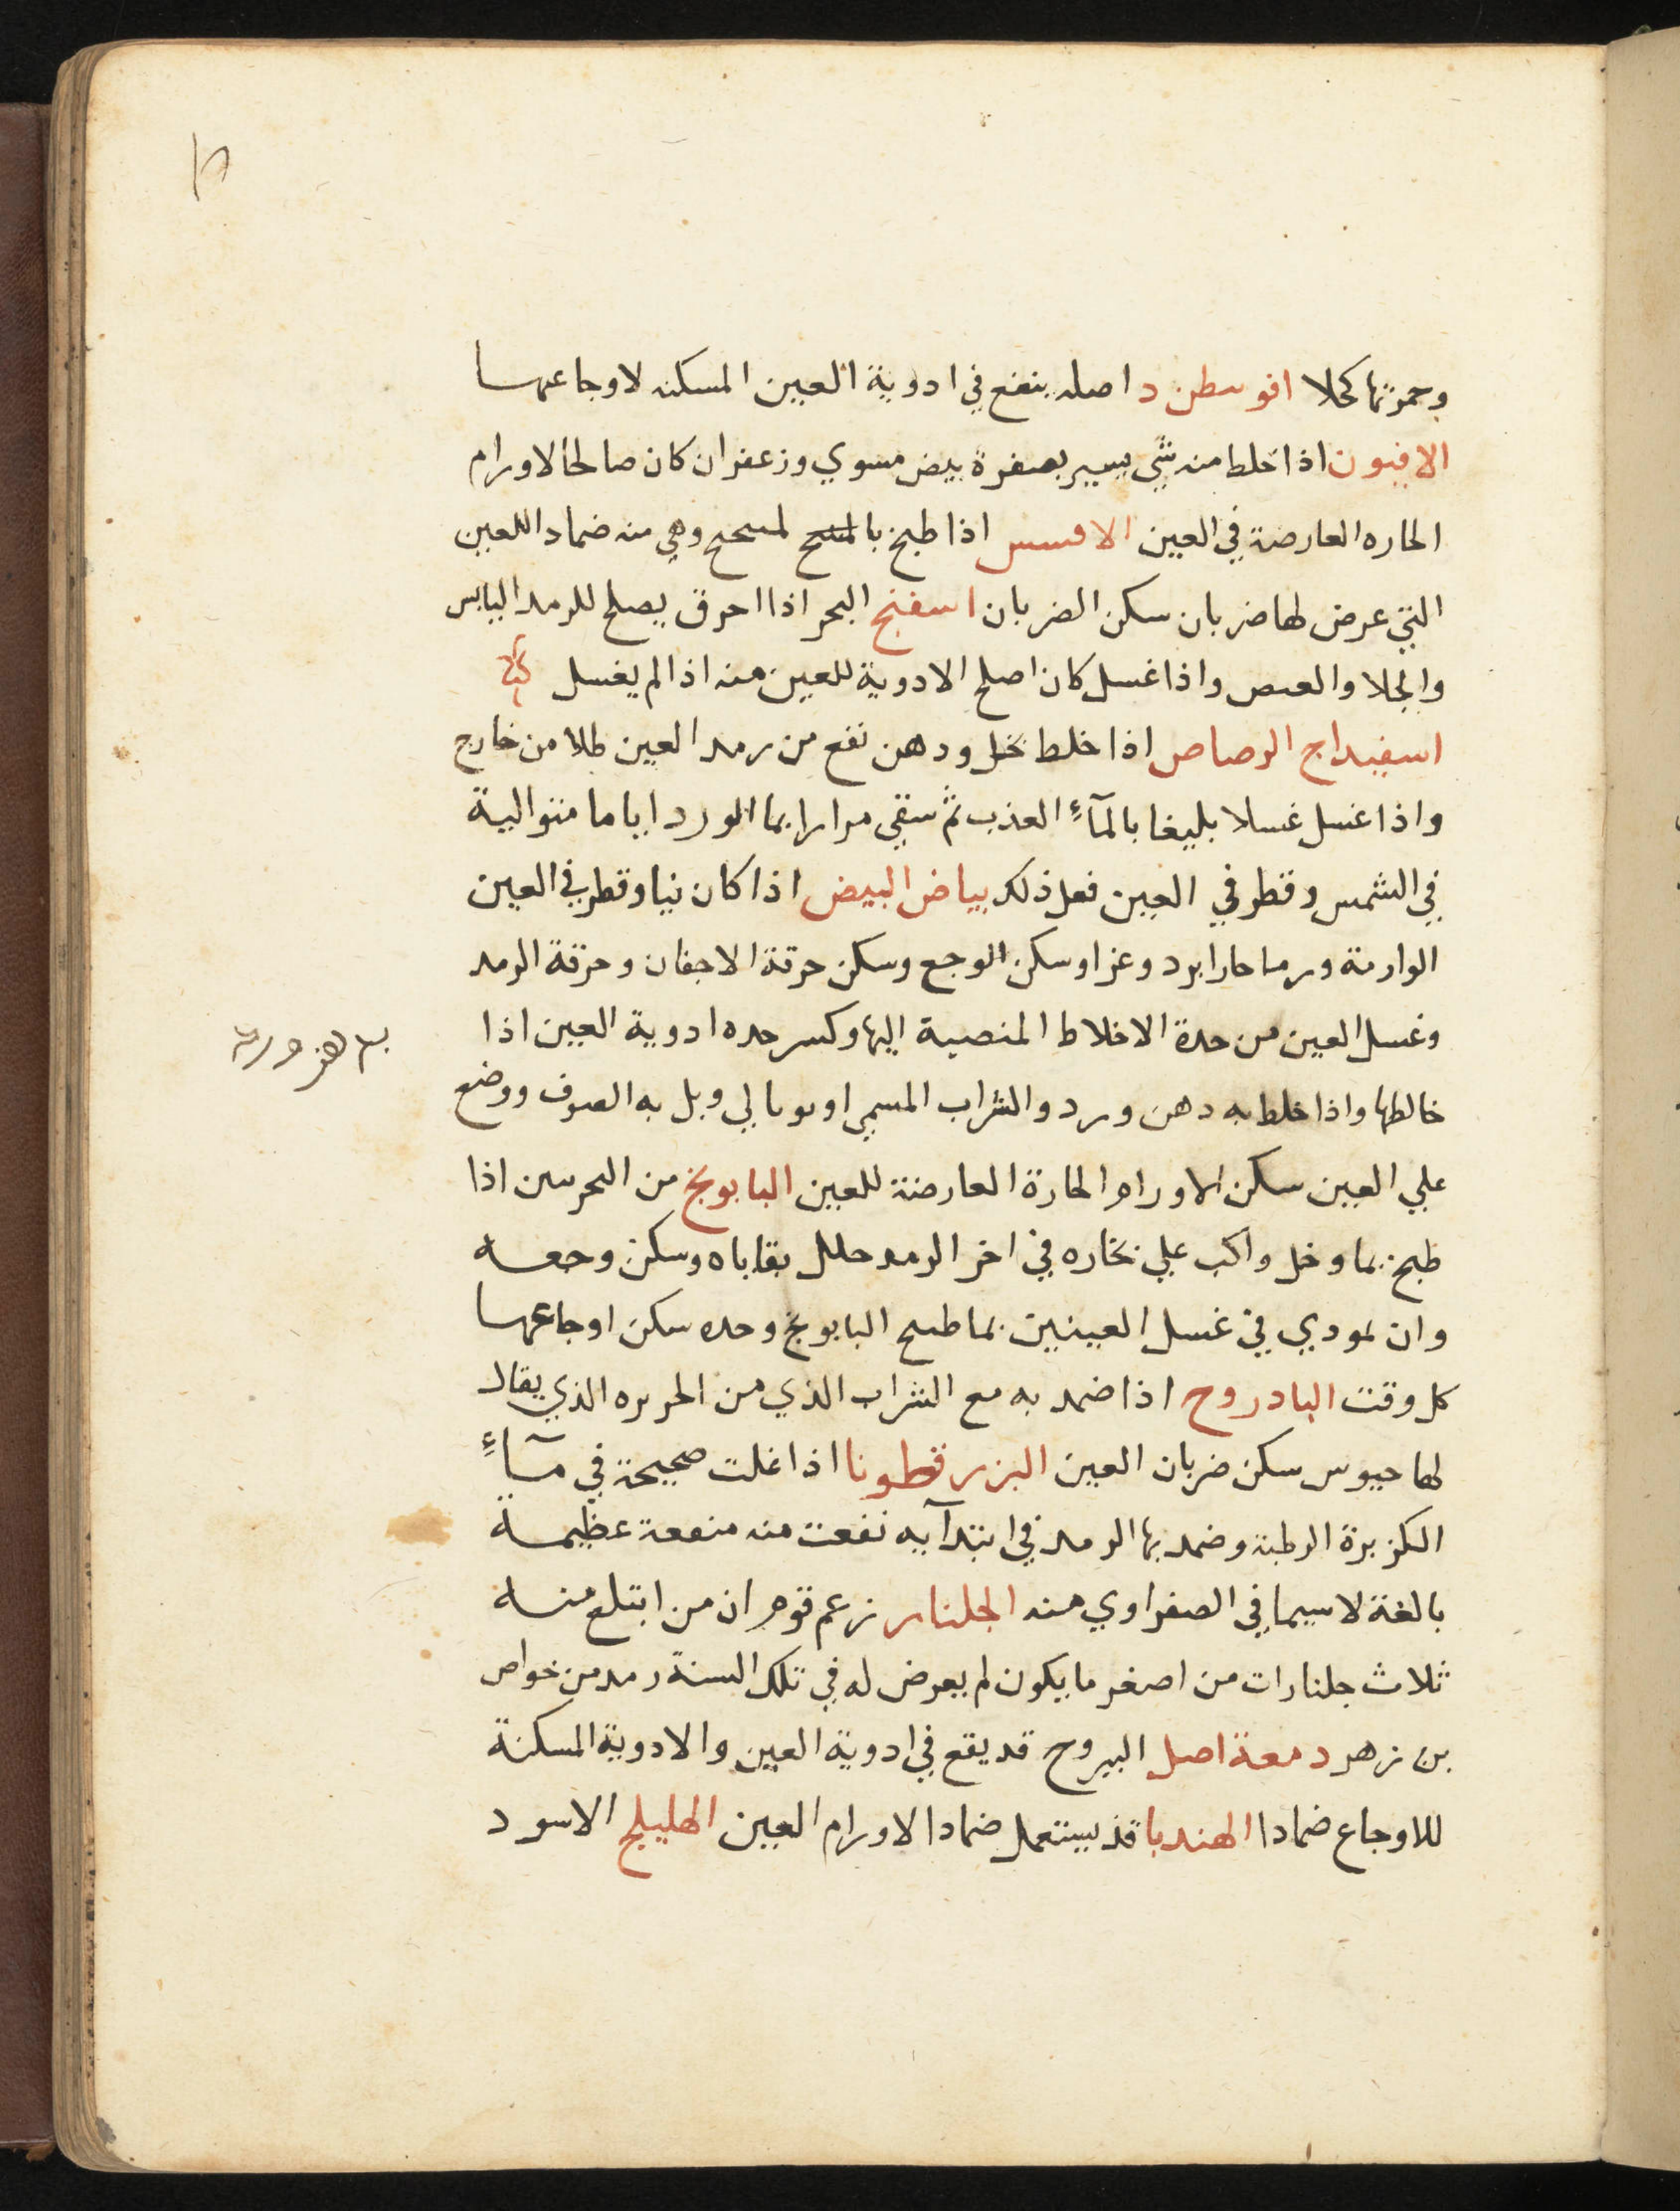 وحمرتها كحلا افوسطن د اصله ينفع في ادوية العين المسكنه لاوجاعها
الافيون اذا خلط منه شي يسير بصفرة بيض مسوي وزعفران كان صالحا لاورام
الحاره العارضة في العين الافسس اذا طبخ وهي منه ضمادا للعين
التي عرض لها ضربان سكن الضربان اسفنج البحر اذا احرق يصلح للرمد اليابس
والجلا والعص واذا غسل كان اصلح الادوية للعين منه اذا لم يغسل
اسفيداج الرصاص اذا خلط بخل ودهن نفع من رمد العين طلا من خارج
واذا غسل غسلا بليغا بالمآء العذب ثم سقي مرارا بما الورد اياما متوالية
في الشمس وقطر في العين فعل ذلك بياض البيض اذا كان نيا وقطر في العين
الوارمة ورما حارا برد وغرا وسكن الوجع وسكن حرقة الاجفان وحرقة الرمد
وغسل العين من حدة الاخلاط المنصبة اليها وكسر حده ادوية العين اذا
خالطها واذا خلط به دهن ورد والشراب المسمي اونومالي وبل به الصوف ووضع
علي العين سكن الاورام الحارة العارضة للعين البابونج من البحرىىن اذا
طبخ بما وخل واكب علي بخاره في اخر الرمد حلل بقاياه وسكن وجعه
وان تمودي في غسل العينين بما طبخ البابونج وحده سكن اوجاعها
كل وقت البادروح اذا ضمد به مع الشراب الذي من الحريره الذي يقال
لها حيوس سكن ضربان العين البزر قطونا اذا غلت صحيحة في مآء
الكزبرة الرطبة وضمد بها الرمد في ابتدآيه نفعت منه منفعة عظيمة
بالغة لاسيما في الصفراوي منه الجلنار زعم قوم ان من ابتلع منه
ثلاث جلنارات من اصغر ما يكون لم يعرض له في تلك السنة رمد من خواص
بن زهر دمعة اصل اليبروح قد يقع في ادوية العين والادوية المسكنة
للاوجاع ضمادا الهندبا قد يستعمل ضمادا لاورام العين الهليلج الاسود